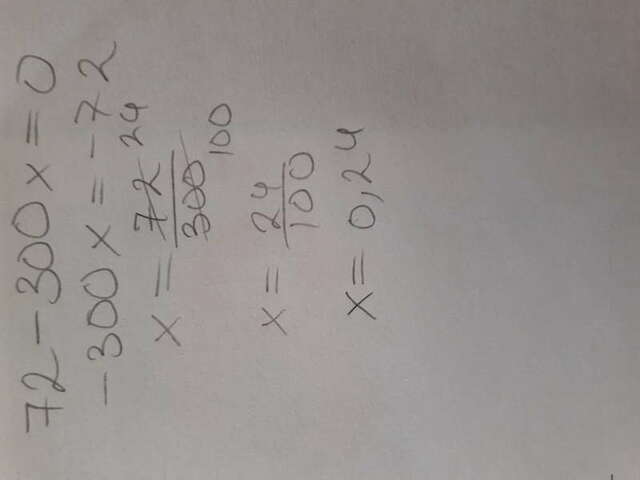 72 - 300x = 0
-300x = -72
x = 72/300 24 100
x = 24/100
x = 0,24